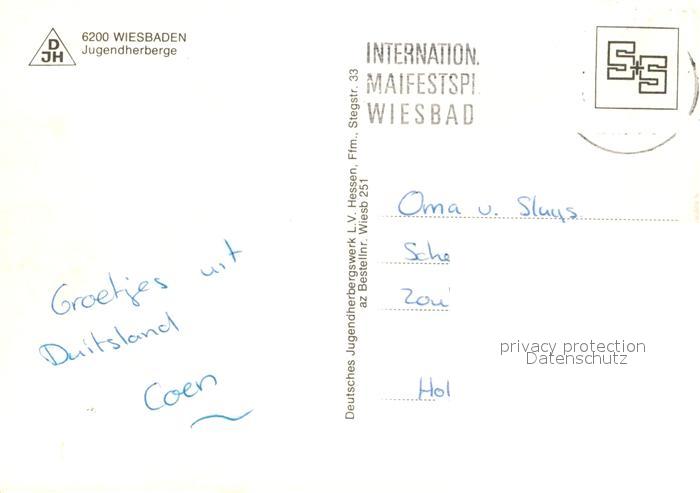 DJH
6200 WIESBADEN
Jugendherberge
INTERNATION.
MAIFESTSPI
WIESBAD
S+S
Deutsches Jugendherbergswerk L.V. Hessen, Ffm., Stegstr. 33
az Bestellnr. Wiesb 251
Oma v. Sluys
Sche
Zoui
Hol
privacy protection
Datenschutz
Groetjes uit
Duitsland
Coen